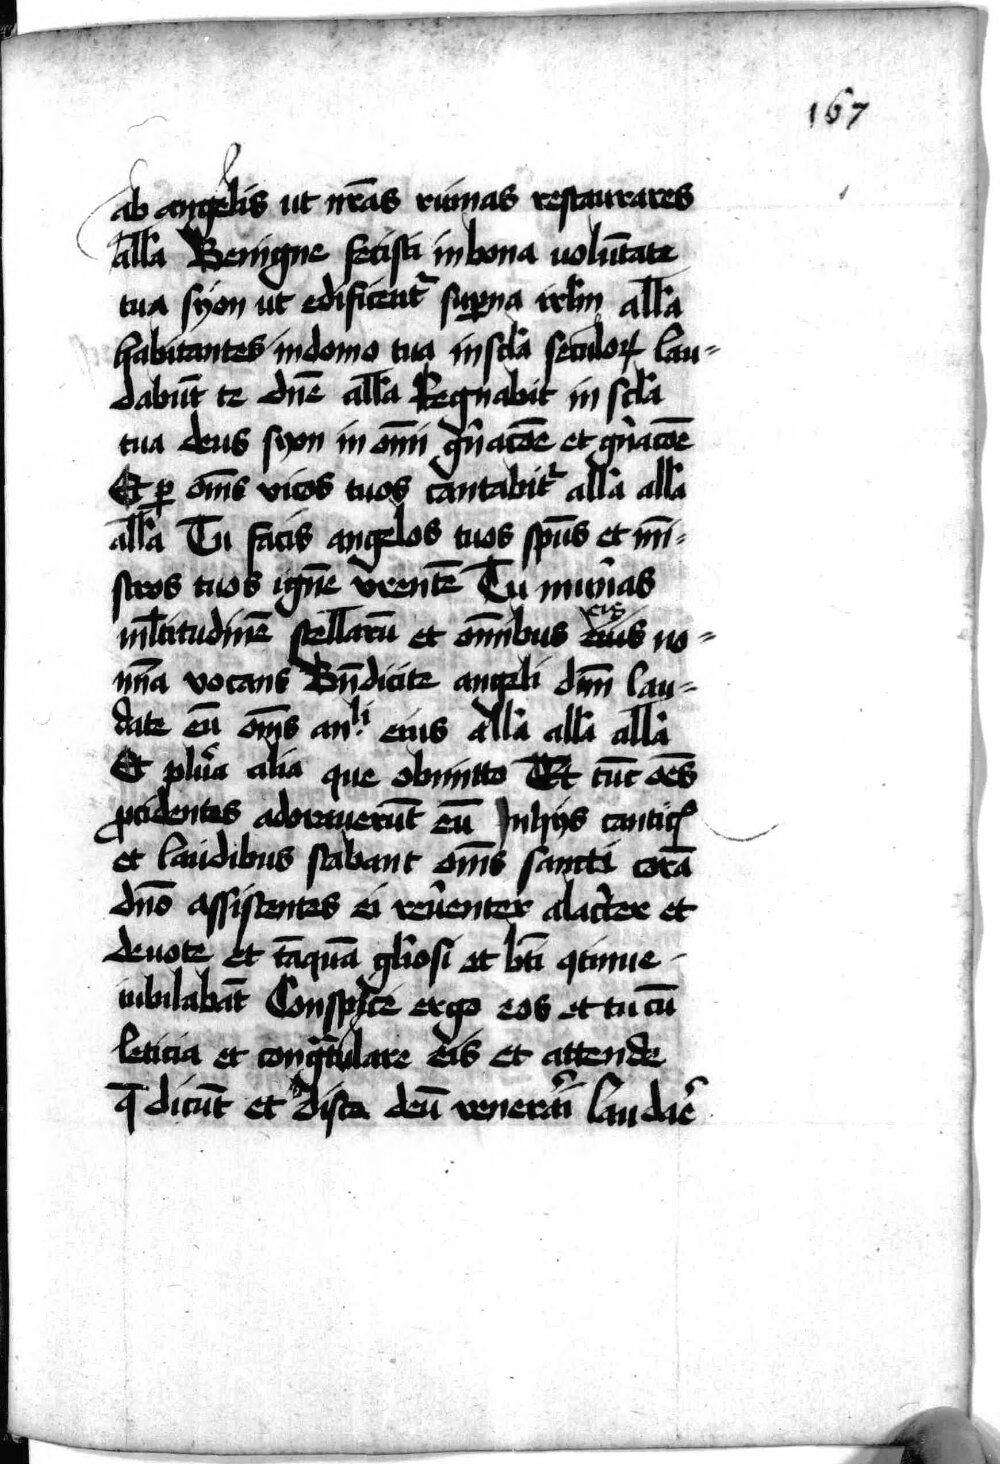 167
ab angelis ut nr̄as ruinas restaurares
all̄a Benigne fecisti in bona volūtate
tua syon ut edificent᷑ suꝑna irlm̄ all̄a
habitantes in domo tua in scl̄a seculoꝝ lau=
dabūt te dn̄e all̄a Regnabit in scl̄a
tua deus syon in om̄i gn̄acōe et gn̄acōe
Et ꝑ om̄s vicos tuos cantabit᷑ all̄a all̄a
all̄a Tu facis angelos tuos sp̄us et mī=
stros tuos ignē vrentē Tu mun̄as
ml̄titudinē stellarū et om̄ibus eis eius no=
mīa vocans Bn̄dicite angeli dn̄m lau=
date eū om̄s an̄li eius all̄a all̄a all̄a
Et plur̄a alia que obmitto Et tūc oēs
ꝓcidentes adorauerūt eū In hijs canticꝭ
et laudibus stabant om̄s sancti corā
dn̄o assistentes ei reu̓enter alacr̓ter et
deuote et tāquā gl̄iosi et bt̄i ꝯtinue
iubilabāt Conspice ergo eos et tu cū
leticia et congᵃtulare eis et attende
q̄ dicūt et disce deū venerari laudar̓